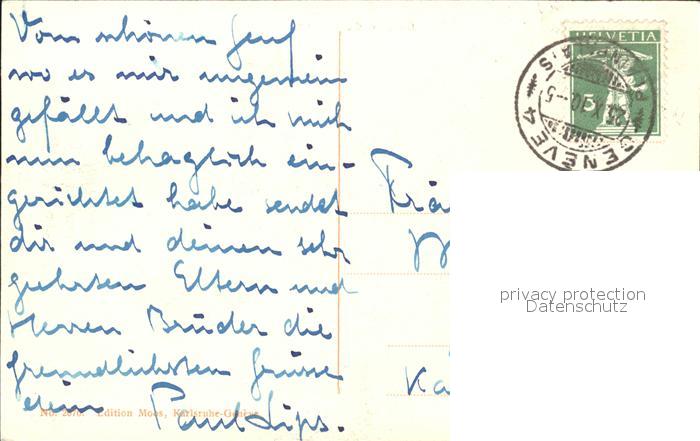 Vom schönen Genf
wo es mir ungemein
gefällt und ich mich
nun behaglich ein-
gerichtet habe sendet
dir und deinen sehr
geehrten Eltern und
Herren Brüder die
freundlichsten Grüsse
dein Paul Lips.
No. 2070. Edition Moos, Karlsruhe-Genève
HELVETIA
5
GENÈVE 4
Frä
Kä
privacy protection
Datenschutz